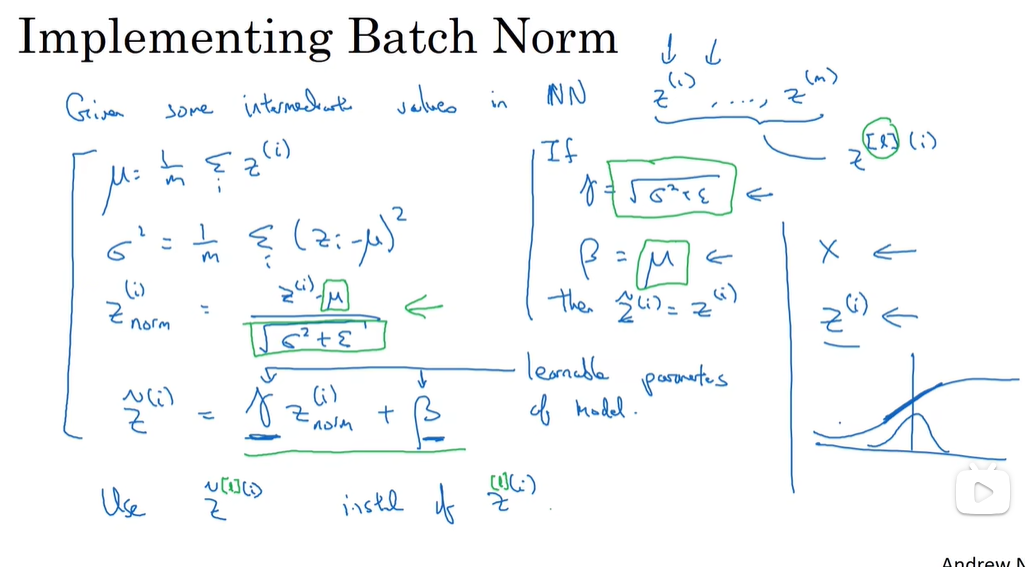 Implementing Batch Norm
Given some intermediate values in NN z^(i), ..., z^(m)
z^[l](i)
μ = 1/m Σ_i z^(i)
σ² = 1/m Σ_i (z_i - μ)²
z^(i)_norm = (z^(i) - μ) / √(σ² + ε)
z̃^(i) = γ z^(i)_norm + β
learnable parameters
of model.
If
γ = √(σ² + ε) ←
β = μ ←
then z̃^(i) = z^(i)
X ←
z^(i) ←
Use z̃^[l](i) instead of z^[l](i).
Andrew N